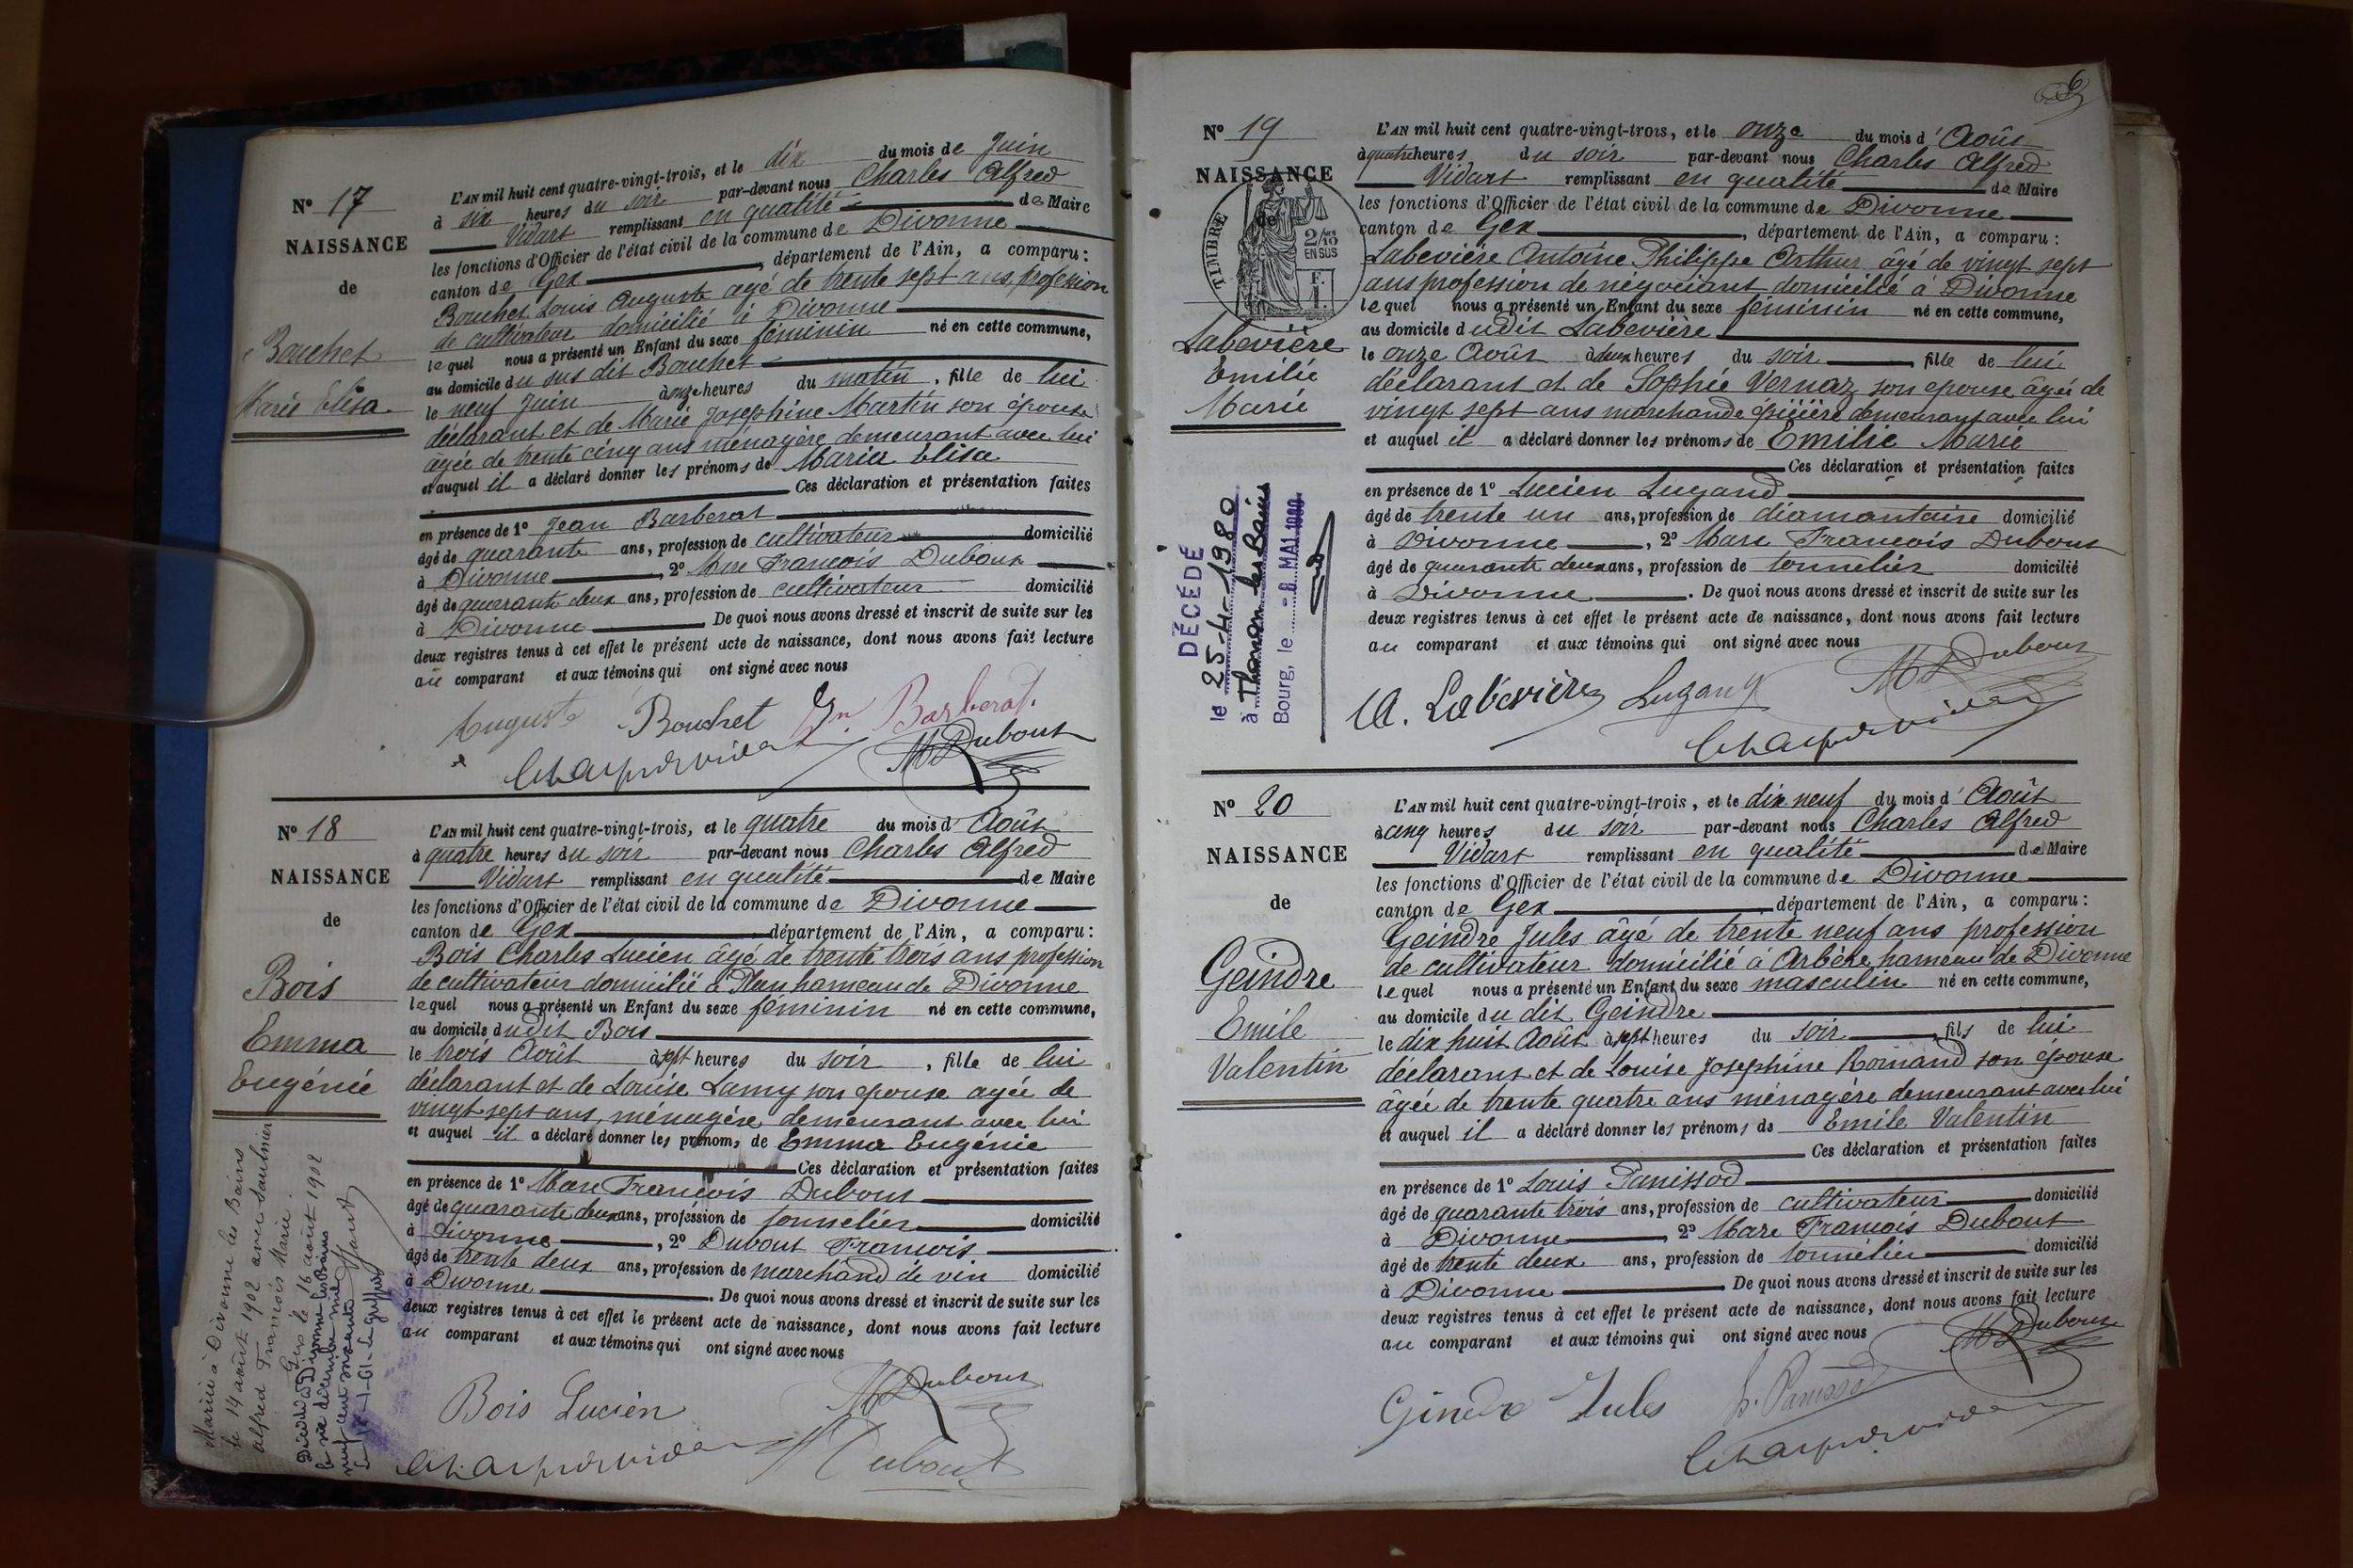 N° 17
NAISSANCE
de
Bouchet
Marie Elisa
L'AN mil huit cent quatre-vingt-trois, et le dix du mois de Juin
à six heures du soir par-devant nous Charles Alfred
Vidart remplissant en qualité de Maire
les fonctions d'Officier de l'état civil de la commune de Divonne
canton de Gex, département de l'Ain, a comparu:
Bouchet Louis Auguste agé de trente sept ans, profession
de cultivateur domicilié à Divonne
lequel nous a présenté un Enfant du sexe féminin né en cette commune,
au domicile du sus dit Bouchet
le neuf Juin à onze heures du matin, fille de lui
déclarant et de Marie Josephine Martin son épouse
âgée de trente cinq ans ménagère demeurant avec lui
et auquel il a déclaré donner les prénoms de Marie Elisa
Ces déclaration et présentation faites
en présence de 1° Jean Barberat
âgé de quarante ans, profession de cultivateur domicilié
à Divonne, 2° Marc François Dubout
âgé de quarante deux ans, profession de cultivateur domicilié
à Divonne De quoi nous avons dressé et inscrit de suite sur les
deux registres tenus à cet effet le présent acte de naissance, dont nous avons fait lecture
au comparant et aux témoins qui ont signé avec nous
Auguste Bouchet Jn. Barberat.
M Dubout
N° 18
NAISSANCE
de
Bois
Emma
Eugénie
L'AN mil huit cent quatre-vingt-trois, et le quatre du mois d'Août
à quatre heures du soir par-devant nous Charles Alfred
Vidart remplissant en qualité de Maire
les fonctions d'Officier de l'état civil de la commune de Divonne
canton de Gex département de l'Ain, a comparu:
Bois Charles Lucien âgé de trente trois ans profession
de cultivateur domicilié à Plan hameau de Divonne
lequel nous a présenté un Enfant du sexe féminin né en cette commune,
au domicile dudit Bois
le trois Août à sept heures du soir, fille de lui
déclarant et de Louise Lamy son epouse agée de
vingt sept ans, ménagère demeurant avec lui
et auquel il a déclaré donner les prénoms de Emma Eugénie
Ces déclaration et présentation faites
en présence de 1° Marc François Dubout
âgé de quarante deux ans, profession de tonnelier domicilié
à Divonne, 2° Dubout François
âgé de trente deux ans, profession de marchand de vin domicilié
à Divonne. De quoi nous avons dressé et inscrit de suite sur les
deux registres tenus à cet effet le présent acte de naissance, dont nous avons fait lecture
au comparant et aux témoins qui ont signé avec nous
Bois Lucien M Dubout
Dubout
Mariée à Divonne les Bains
le 14 août 1902 avec Saulnier
Alfred François Marie.
Gex le 16 août 1902
Décédée à Divonne les Bains
Le Greffier
N° 19
NAISSANCE
de
TIMBRE
2/10
EN SUS
F.
1.
Labevière
Emilie
Marie
DÉCÉDÉ
le 25-4-1980
à Thonon les Bains
Bourg, le - 8 MAI 1980
L'AN mil huit cent quatre-vingt-trois, et le onze du mois d'Août
à quatre heures du soir par-devant nous Charles Alfred
Vidart remplissant en qualité de Maire
les fonctions d'Officier de l'état civil de la commune de Divonne
canton de Gex, département de l'Ain, a comparu:
Labevière Antoine Philippe Arthur agé de vingt sept
ans profession de négociant domicilié à Divonne
lequel nous a présenté un Enfant du sexe féminin né en cette commune,
au domicile dudit Labevière
le onze Août à deux heures du soir fille de lui
déclarant et de Sophie Vernaz son epouse âgée de
vingt sept ans marchande épicière demeurant avec lui
et auquel il a déclaré donner les prénoms de Emilie Marie
Ces déclaration et présentation faites
en présence de 1° Lucien Lugand
âgé de trente un ans, profession de diamantaire domicilié
à Divonne, 2° Marc François Dubout
âgé de quarante deux ans, profession de tonnelier domicilié
à Divonne. De quoi nous avons dressé et inscrit de suite sur les
deux registres tenus à cet effet le présent acte de naissance, dont nous avons fait lecture
au comparant et aux témoins qui ont signé avec nous
A. Labévière Lugand M Dubout
N° 20
NAISSANCE
de
Geindre
Emile
Valentin
L'AN mil huit cent quatre-vingt-trois, et le dix neuf du mois d'Août
à cinq heures du soir par-devant nous Charles Alfred
Vidart remplissant en qualité de Maire
les fonctions d'Officier de l'état civil de la commune de Divonne
canton de Gex département de l'Ain, a comparu:
Geindre Jules âgé de trente neuf ans profession
de cultivateur domicilié à Arbère hameau de Divonne
lequel nous a présenté un Enfant du sexe masculin né en cette commune,
au domicile du dit Geindre
le dix huit Août à sept heures du soir, fils de lui
déclarant et de Louise Josephine Romand son épouse
agée de trente quatre ans ménagère demeurant avec lui
et auquel il a déclaré donner les prénoms de Emile Valentin
Ces déclaration et présentation faites
en présence de 1° Louis Panissod
âgé de quarante trois ans, profession de cultivateur domicilié
à Divonne, 2° Marc François Dubout
âgé de trente deux ans, profession de tonnelier domicilié
à Divonne De quoi nous avons dressé et inscrit de suite sur les
deux registres tenus à cet effet le présent acte de naissance, dont nous avons fait lecture
au comparant et aux témoins qui ont signé avec nous
Gindre Jules L. Panissod M Dubout